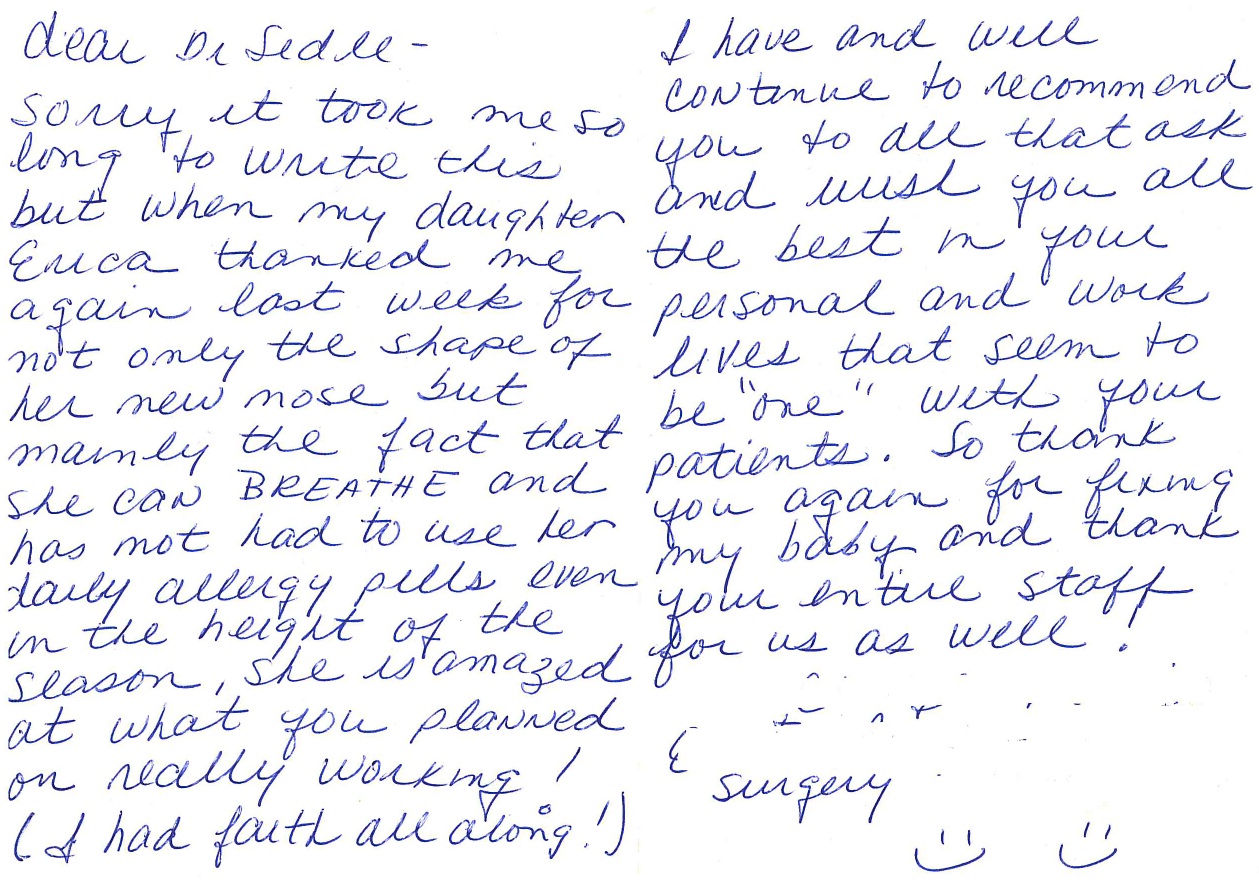 dear Dr Sedle-
sorry it took me so
long to write this
but when my daughter
Erica thanked me
again last week for
not only the shape of
her new nose but
mainly the fact that
she can BREATHE and
has not had to use her
daily allergy pills even
in the height of the
season, she is amazed
at what you planned
on really working!
(I had faith all along!)
I have and will
continue to recommend
you to all that ask
and wish you all
the best in your
personal and work
lives that seem to
be "one" with your
patients. So thank
you again for fixing
my baby and thank
your entire staff
for us as well!
surgery